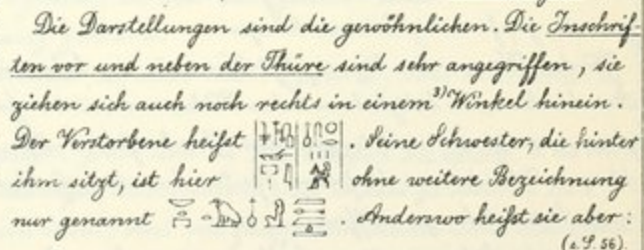 Die Darstellungen sind die gewöhnlichen. Die Inschrif-
ten vor und neben der Thüre sind sehr angegriffen, sie
ziehen sich auch noch rechts in einem ³⁾ Winkel hinein.
Der Verstorbene heißt . Seine Schwester, die hinter
ihm sitzt, ist hier ohne weitere Bezeichnung
nur genannt . Anderswo heißt sie aber:
(s. S. 56)